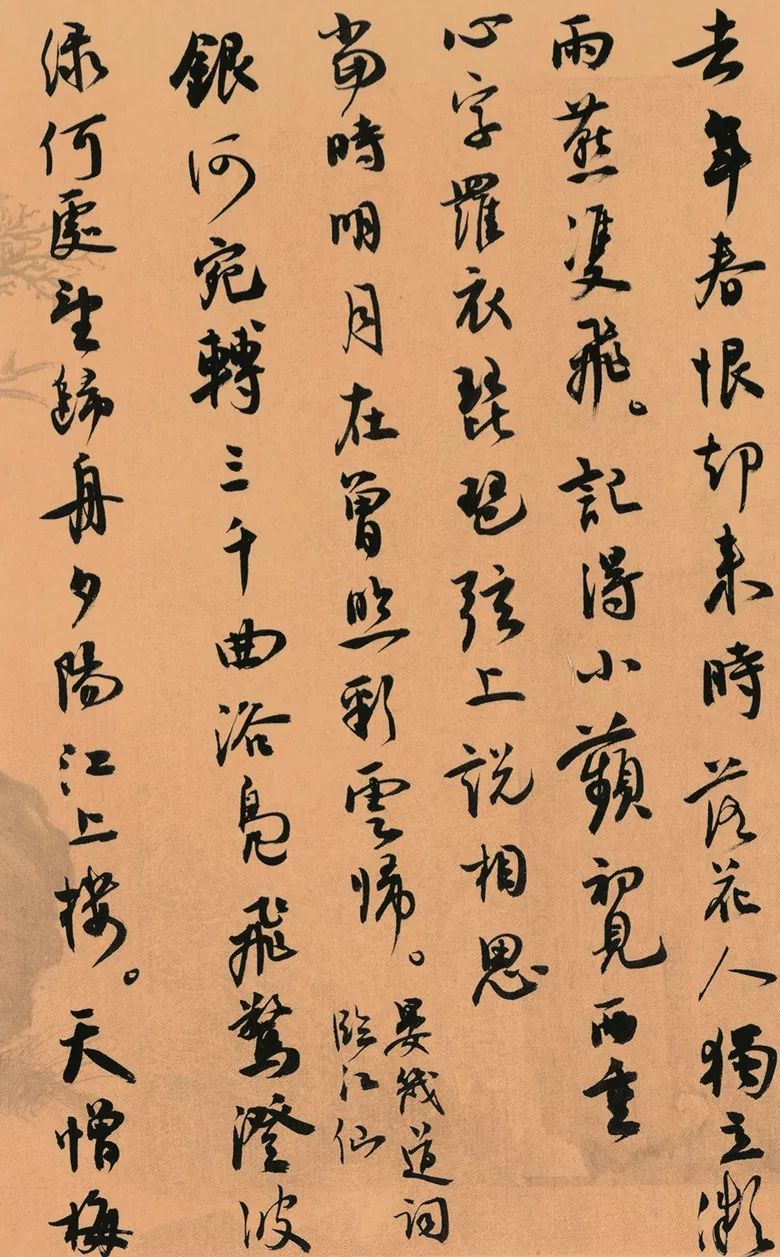 去年春恨却来時落花人獨立微
雨燕雙飛。記得小蘋初見兩重
心字羅衣琵琶弦上說相思
當時明月在曾照彩雲歸。
晏幾道詞
臨江仙
銀河宛轉三千曲浴鳧飛鷺澄波
綠何處望歸舟夕陽江上樓。天憎梅